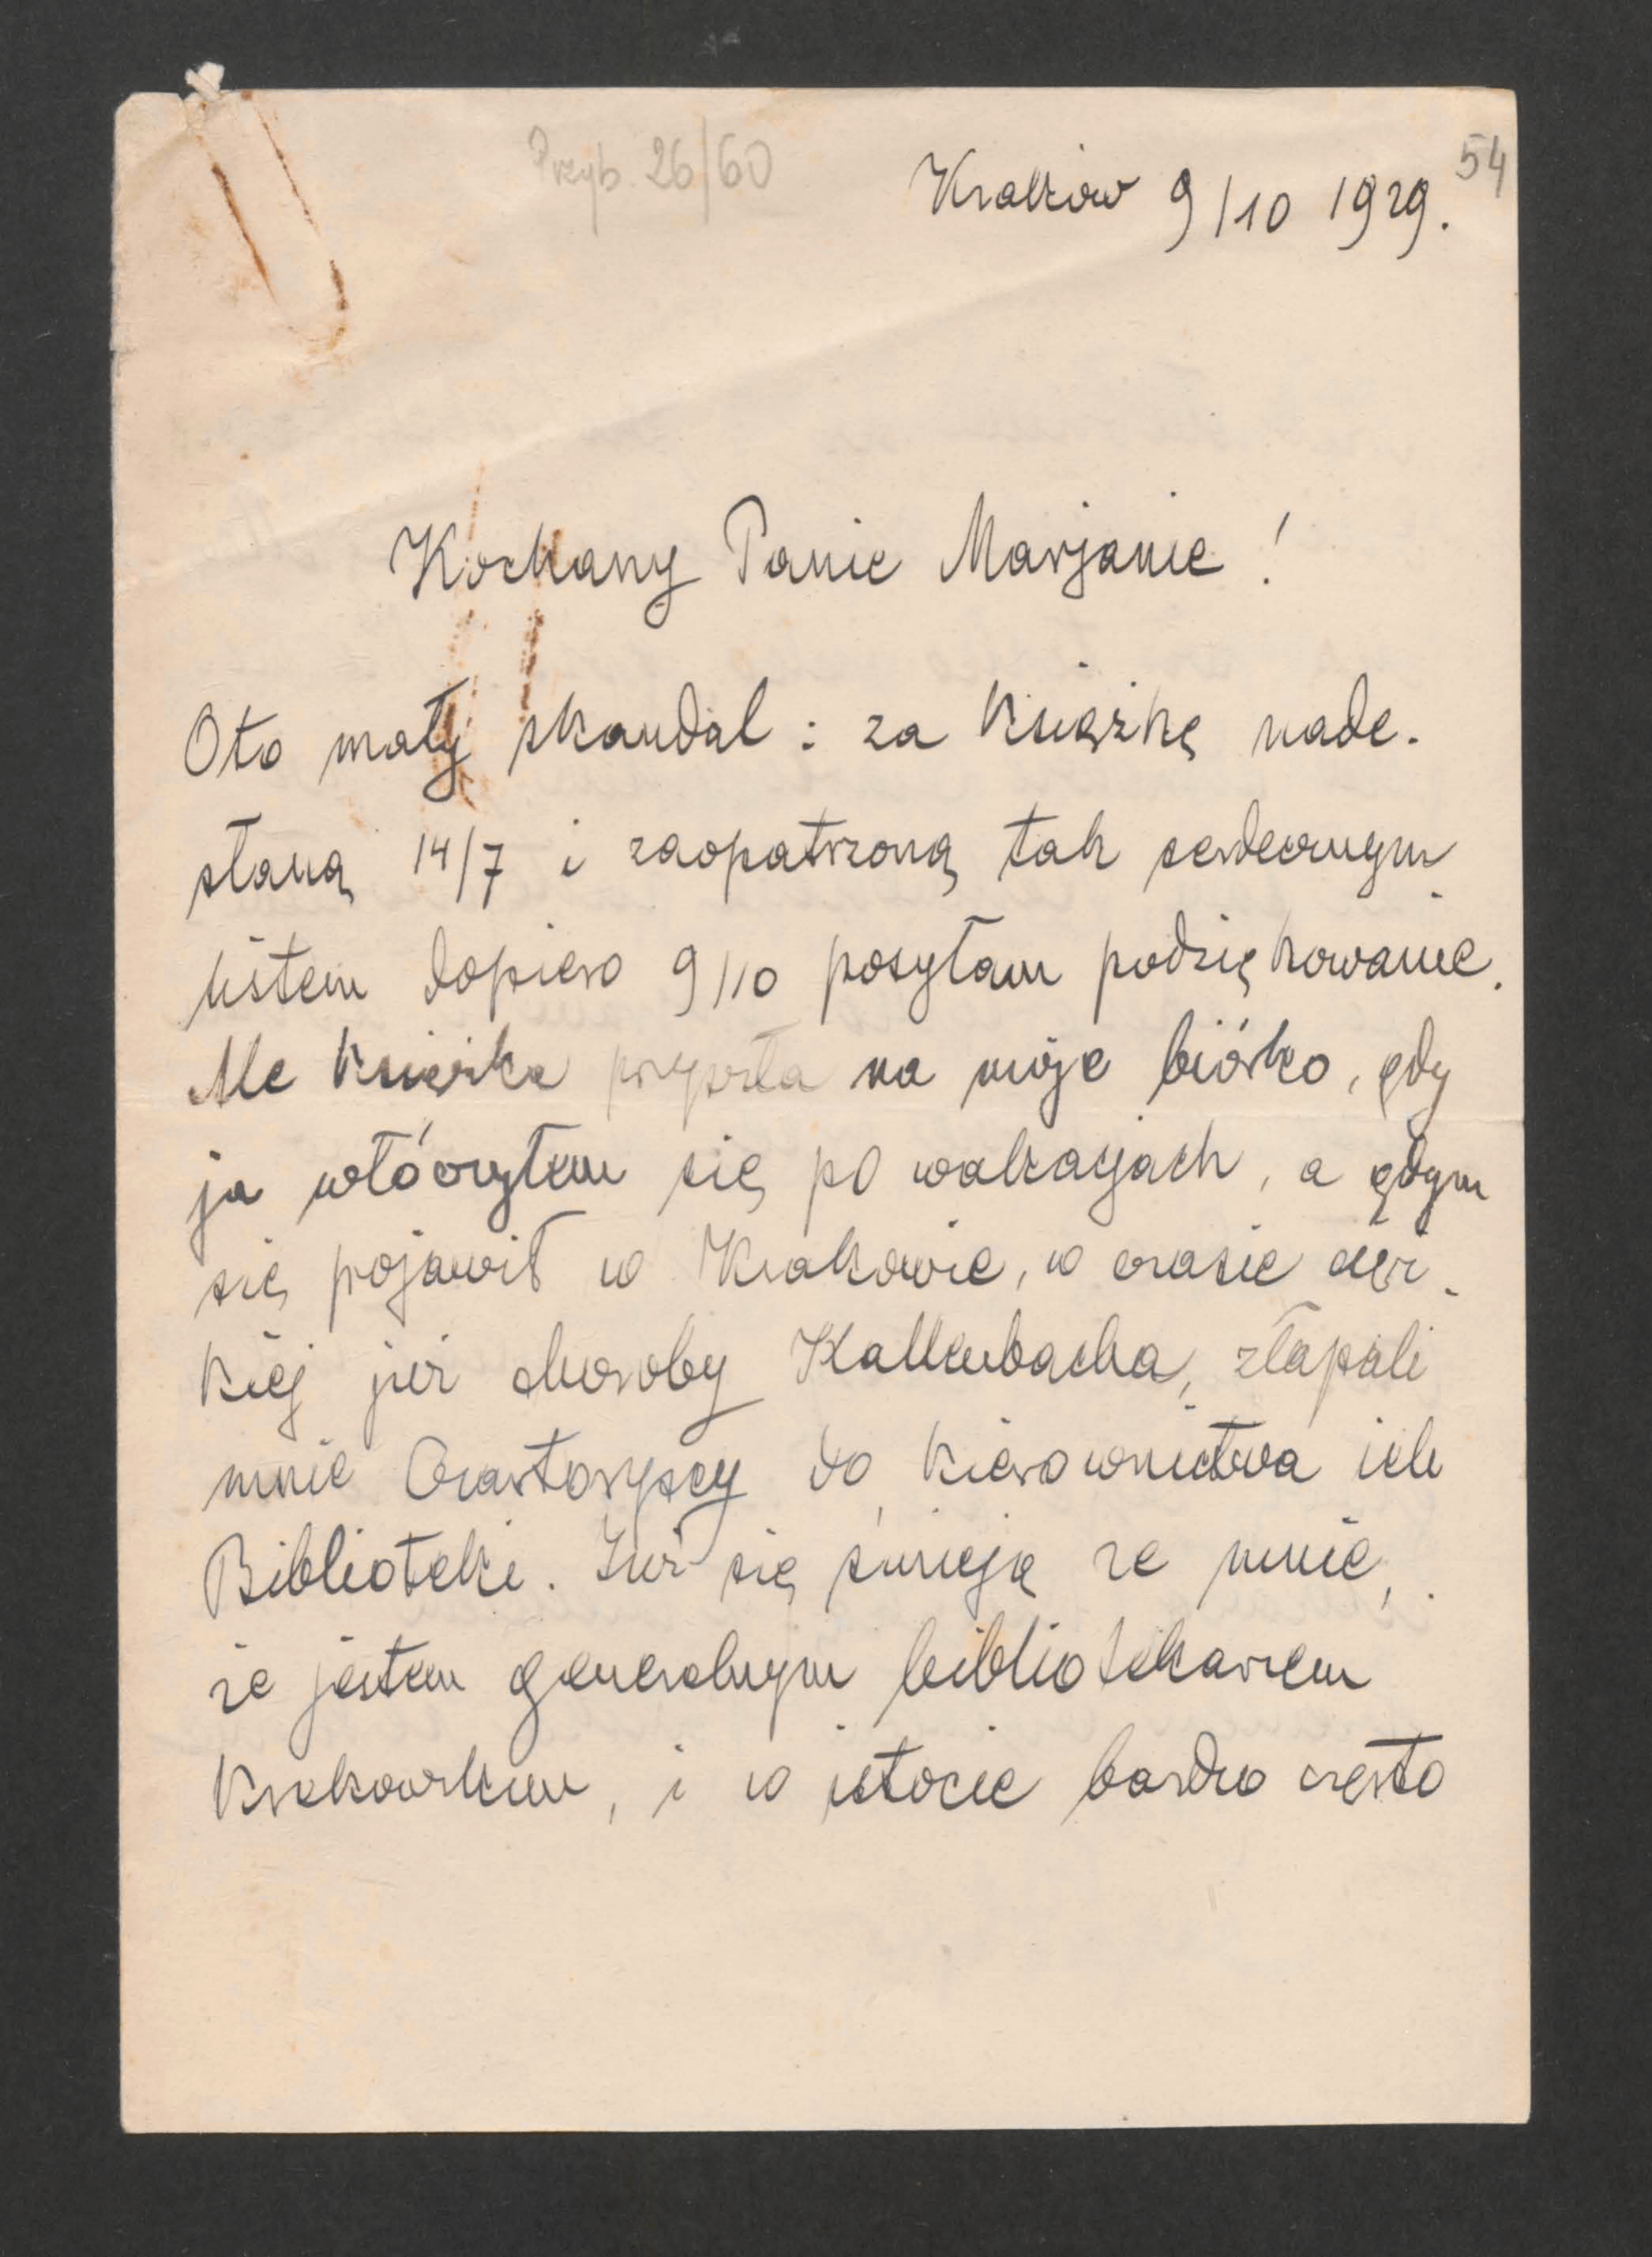 Przyb. 26/60
54
Kraków 9/10 1929.
Kochany Panie Marjanie!
Oto mały skandal: za książkę nade-
słaną 14/7 i zaopatrzoną tak serdecznym
listem dopiero 9/10 posyłam podziękowanie.
Ale książka przyszła na moje biórko, gdy
ja włóczyłem się po wakacjach, a gdym
się pojawił w Krakowie, w czasie cięż-
kiej już choroby Kallenbacha, złapali
mnie Czartoryscy do kierownictwa ich
Biblioteki. Już się śmieją ze mnie,
że jestem generalnym bibliotekarzem
krakowskim, i w istocie bardzo często